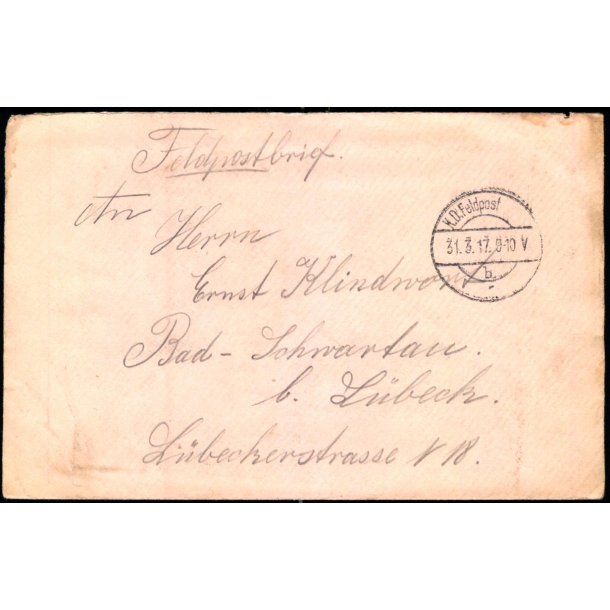 Feldpostbrief.
An
Herrn
Ernst Klindwort
Bad-Schwartau.
b. Lübeck.
Lübeckerstrasse N 18.
K.D.Feldpost
31.3.17. 9-10 V
b.